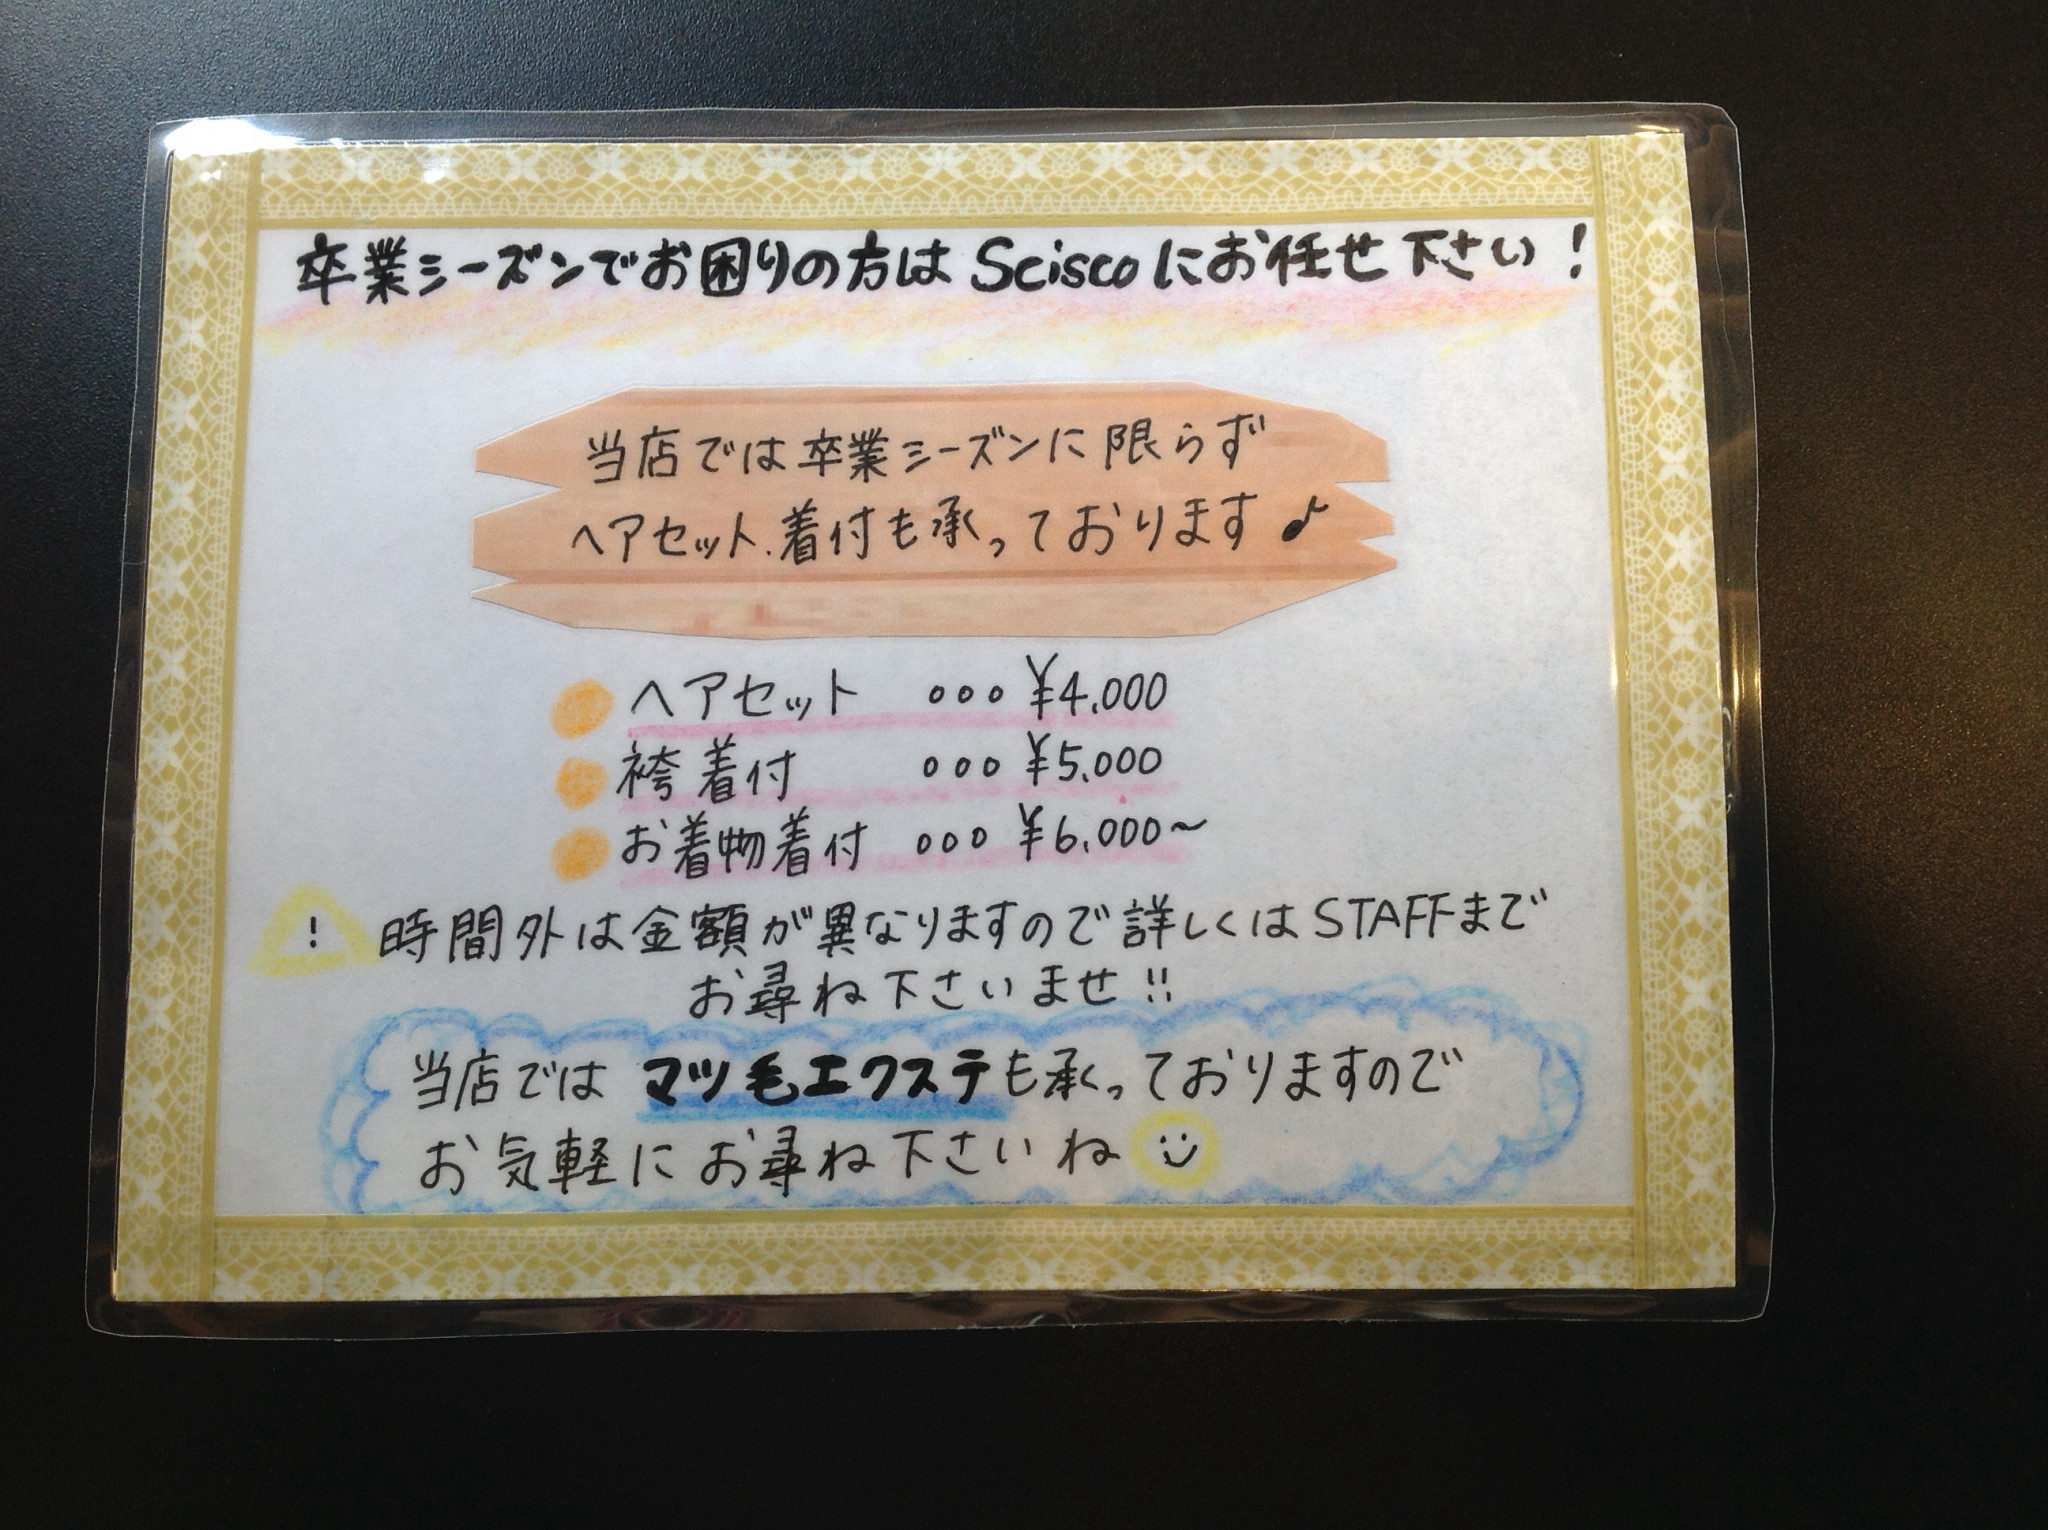 卒業シーズンでお困りの方はSciscoにお任せ下さい!
当店では卒業シーズンに限らず
ヘアセット、着付も承っております♪
ヘアセット 。。。¥4,000
袴着付 。。。¥5,000
お着物着付 。。。¥6,000〜
! 時間外は金額が異なりますので詳しくはSTAFFまで
お尋ね下さいませ!!
当店ではマツ毛エクステも承っておりますので
お気軽にお尋ね下さいね